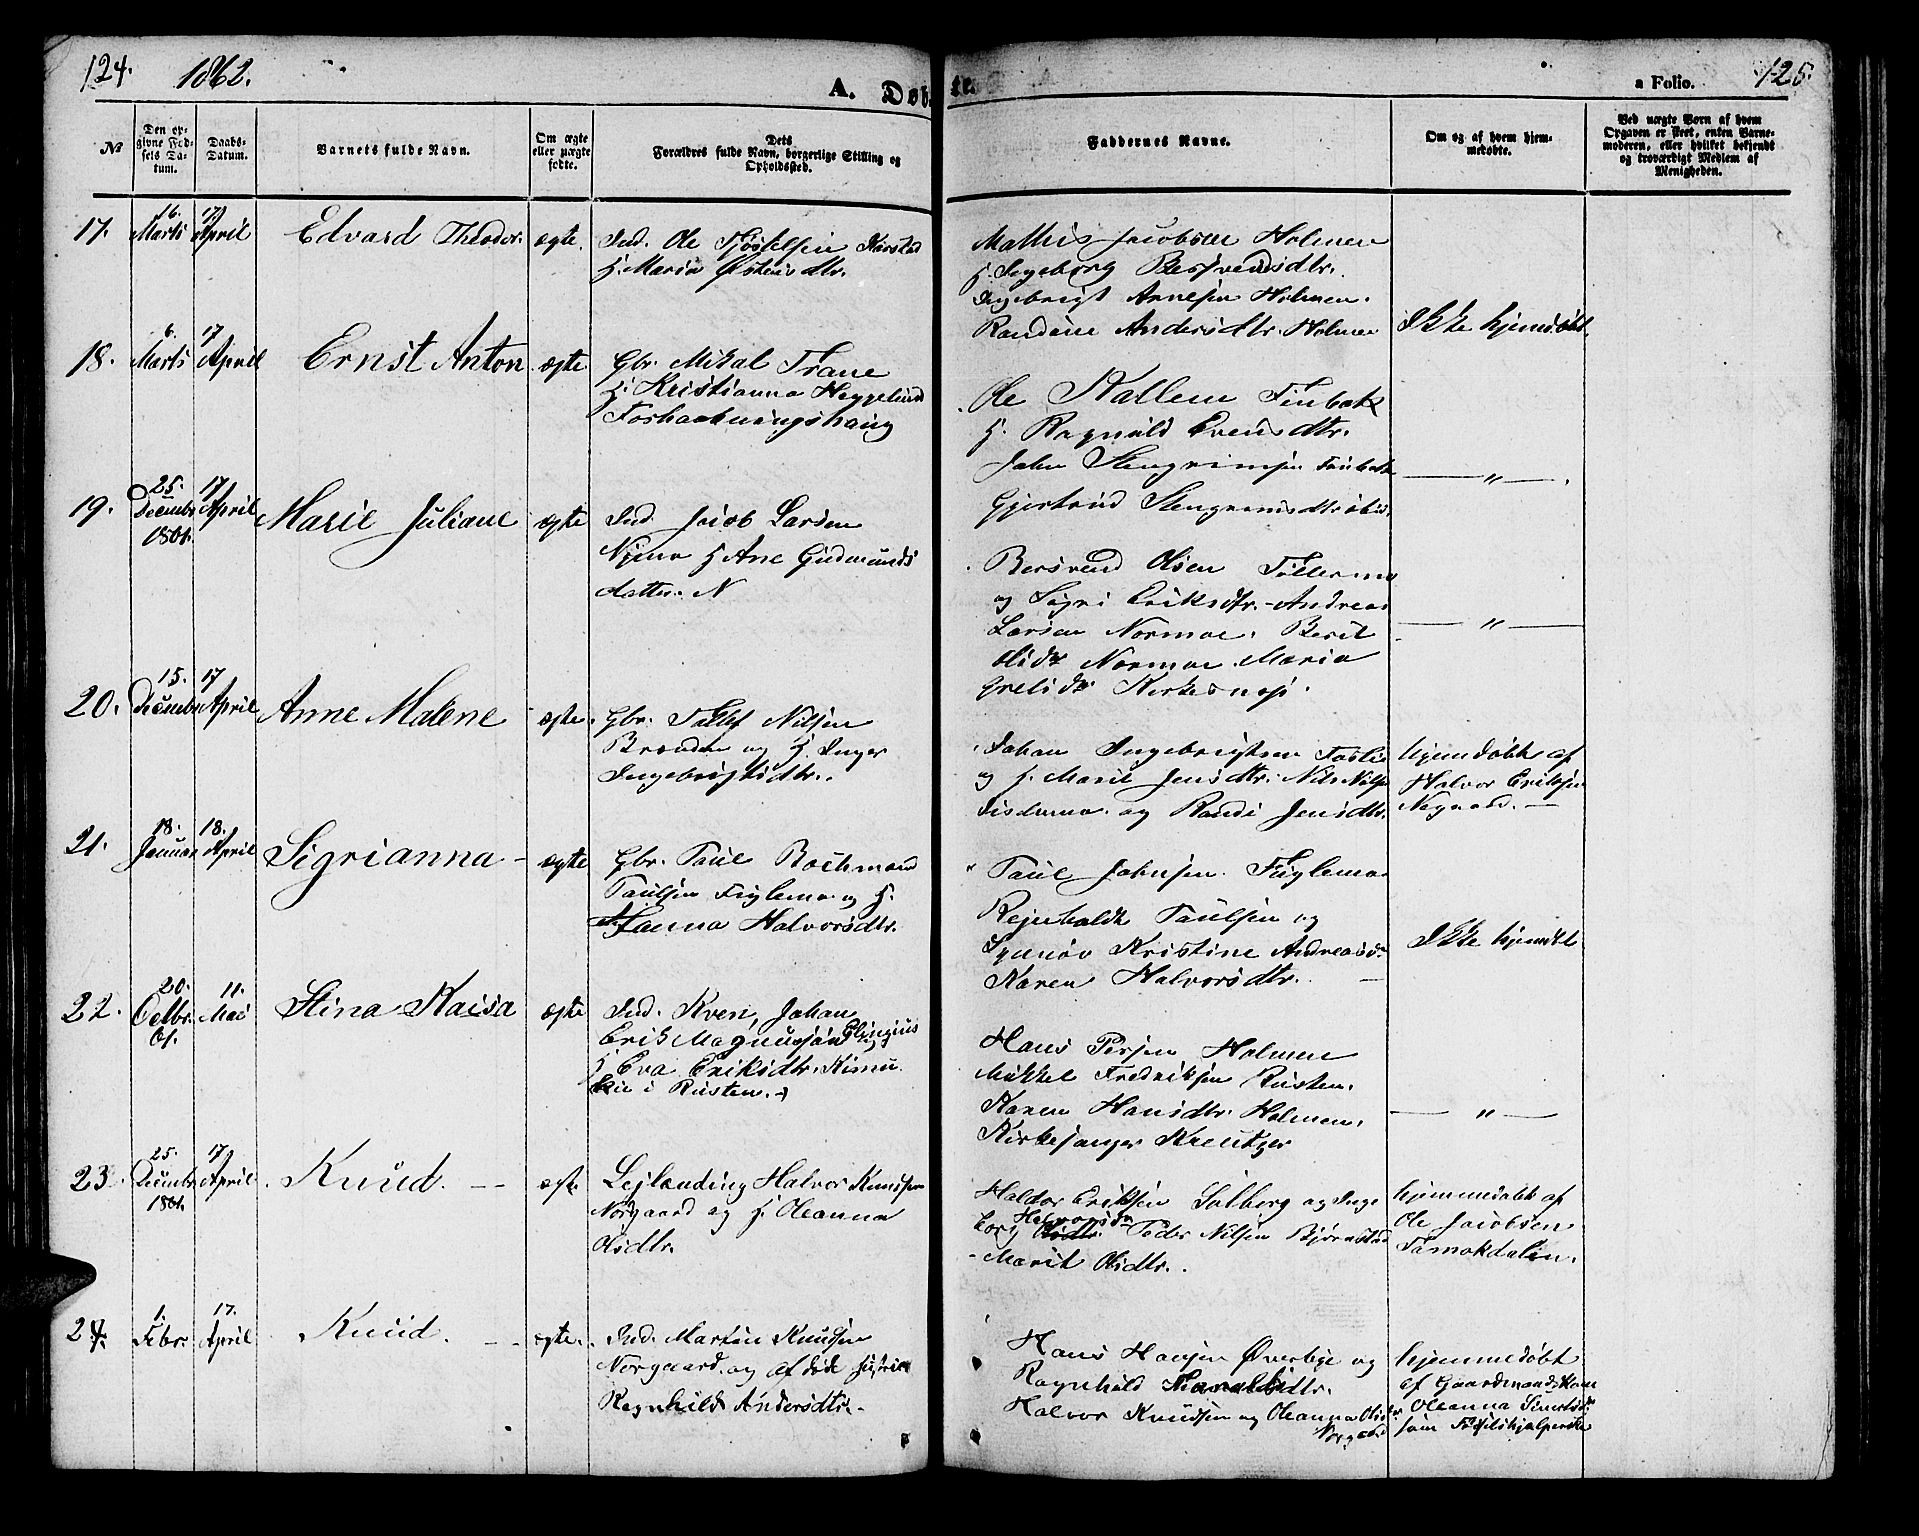 124.
1862.
A. Døb
te.
a Folio.
125.
№
Den opgivne Fødsels Datum.
Daabs-Datum.
Varnets fulde Navn.
Om ægte eller uægte fødte.
Dets Forældres fulde Navn, borgerlige Stilling og Opholdssted.
Faddernes Navne.
Om og af hvem hjemmedøbte.
Ved uægte Børn af hvem Opgaven er skeet, enten Barnemoderen, eller hvilket bekjendt og troværdigt Medlem af Menigheden.
17.
16. Marts
17. April
Edvard Theodor.
ægte.
Ind. Ole
H. Maria Østensdtr.
Mathis Jacobsen Holmen
H. Ingeborg Bersvendsdtr.
Ingebrigt Arnesen Holmen.
Randine Andersdtr. Holmen
Ikke hjemdøbt.
18.
6. Marts
17 April
Ernst Anton
ægte
Gbr. Mikal Trane
H. Kristianna Heggelund
Forhaabningshaug
Ole Kallem Finbak
H. Ragnild Evensdtr.
John Stengrimsen Finbak
Gjertrud Stengrimsdtr ibid.
— " —
19.
25. Decembr 1861.
17 April
Marie Juliane
ægte
Ind. Jacob Larsen
Nymo H. Ane Gudmunds
datter. N
Bersvend Olsen
og Sigri Eriksdtr. - Andreas
Larsen Normoe. Berit
Olsdr Normoe. Maria
— " —
20.
15. Decembr
17 April
Anne Malene
ægte.
Gbr. Tollef Nilsen
Brænden og H. Inger
Ingebrigtsdtr.
Johan Ingebrigtsen Foslie
og H. Marit Jensdtr. Nils Nilss
og Randi Jensdtr.
hjemdøbt af
Halvor Eriksen
21.
18. Januar
18. April
Sigrianna
ægte
Gbr. Paul Bachmand
Paulsen Fuglemo og H.
Hanna Halvorsdtr.
Paul Johnsen. Fuglemo
Rejnholdt Paulsen og
Synnøv Kristine Andreasdr
Karen Halvorsdtr.
Ikke hjemdbt
22.
20. Octbr. 61.
11. Mai
Stina Kaisa
ægte
Ind. Kven, Johan
Erik Magnussøn
H Eva Eriksdtr.
i Rusten.
Hans Persen Holmen
Mikkel Fredriksen Rusten.
Karen Hansdtr. Holmen.
Kirkesanger Kreutzer
— " —
23.
25. Decembr 1861.
17 April
Knud.
ægte
Lejlænding Halvor Knudsen
Norgaard og H. Oleanna
Olsdtr.
Haldor Eriksen Solberg og Inge
borg Halvorsdr Peder Nilsen Bjørnstad
Marit Olsdtr.
hjemmedøbt af
Ole Jacobsen
Tamokdalen.
24.
1. Febr.
17. April
Knud.
ægte.
Ind. Morten Knudsen
Norgaard og af døde Hustrue
Ragnhild Andersdtr.
Hans Hansen Øverbye og
Ragnhild
Halvor Knudsen og Oleanna Olsdtr
Norgaard
hjemmedøbt
af Gaardmandskone
Oleanna Sivertsdr
som Fødselshjælperske